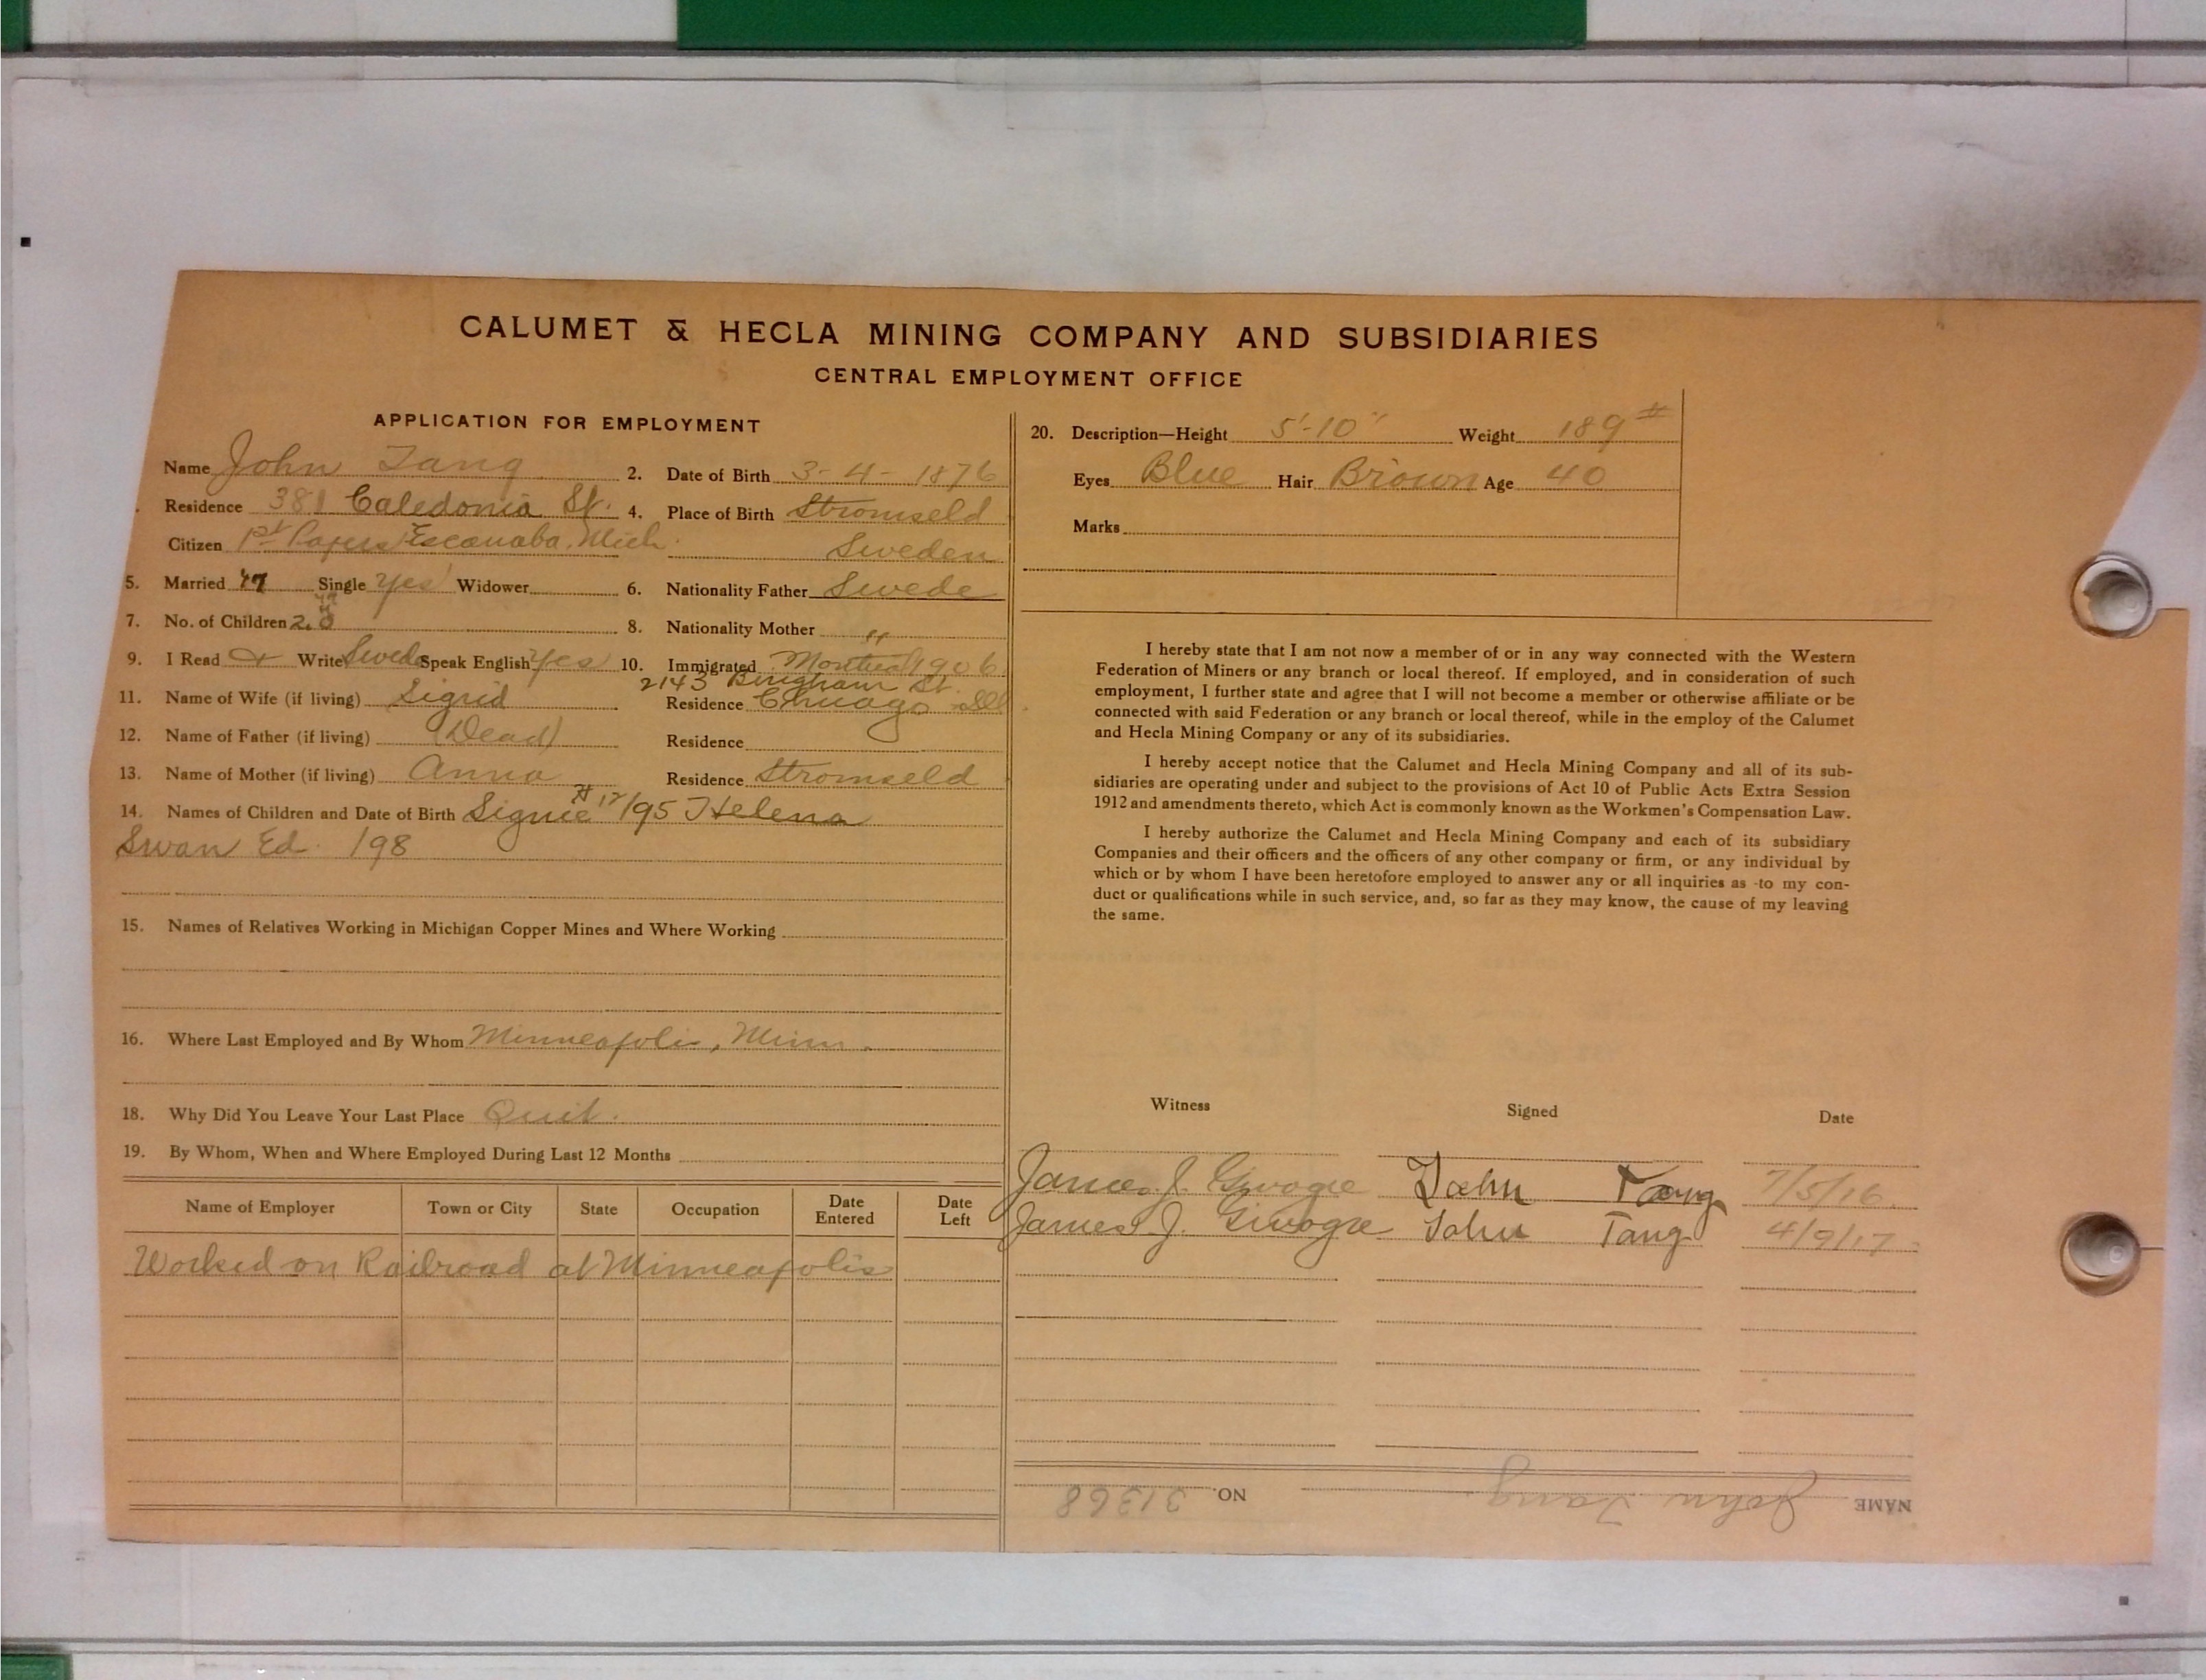 CALUMET & HECLA MINING COMPANY AND SUBSIDIARIES
CENTRAL EMPLOYMENT OFFICE
APPLICATION FOR EMPLOYMENT
Name John Tang 2. Date of Birth 3-4-1876
Residence 381 Caledonia St. 4. Place of Birth Stromseld
Citizen 1st Papers Escanaba, Mich. Sweden
5. Married Single yes Widower 6. Nationality Father Swede
7. No. of Children 2. 8. Nationality Mother "
9. I Read & Write Swede Speak English yes 10. Immigrated Montreal 1906
2143 Bingham St.
11. Name of Wife (if living) Sigrid Residence Chicago Ill
12. Name of Father (if living) (Dead) Residence
13. Name of Mother (if living) Anna Residence Stromseld
14. Names of Children and Date of Birth Signie /95 Helena
Swan Ed. 198
15. Names of Relatives Working in Michigan Copper Mines and Where Working
16. Where Last Employed and By Whom Minneapolis, Minn.
18. Why Did You Leave Your Last Place Quit.
19. By Whom, When and Where Employed During Last 12 Months
Name of Employer Town or City State Occupation Date Entered Date Left
Worked on Railroad at Minneapolis
20. Description—Height 5'-10" Weight 189#
Eyes Blue Hair Brown Age 40
Marks
I hereby state that I am not now a member of or in any way connected with the Western
Federation of Miners or any branch or local thereof. If employed, and in consideration of such
employment, I further state and agree that I will not become a member or otherwise affiliate or be
connected with said Federation or any branch or local thereof, while in the employ of the Calumet
and Hecla Mining Company or any of its subsidiaries.
I hereby accept notice that the Calumet and Hecla Mining Company and all of its sub-
sidiaries are operating under and subject to the provisions of Act 10 of Public Acts Extra Session
1912 and amendments thereto, which Act is commonly known as the Workmen's Compensation Law.
I hereby authorize the Calumet and Hecla Mining Company and each of its subsidiary
Companies and their officers and the officers of any other company or firm, or any individual by
which or by whom I have been heretofore employed to answer any or all inquiries as to my con-
duct or qualifications while in such service, and, so far as they may know, the cause of my leaving
the same.
Witness Signed Date
James J. John Tang 7/5/16
James J. John Tang 4/9/17
NAME John Tang NO. 31368